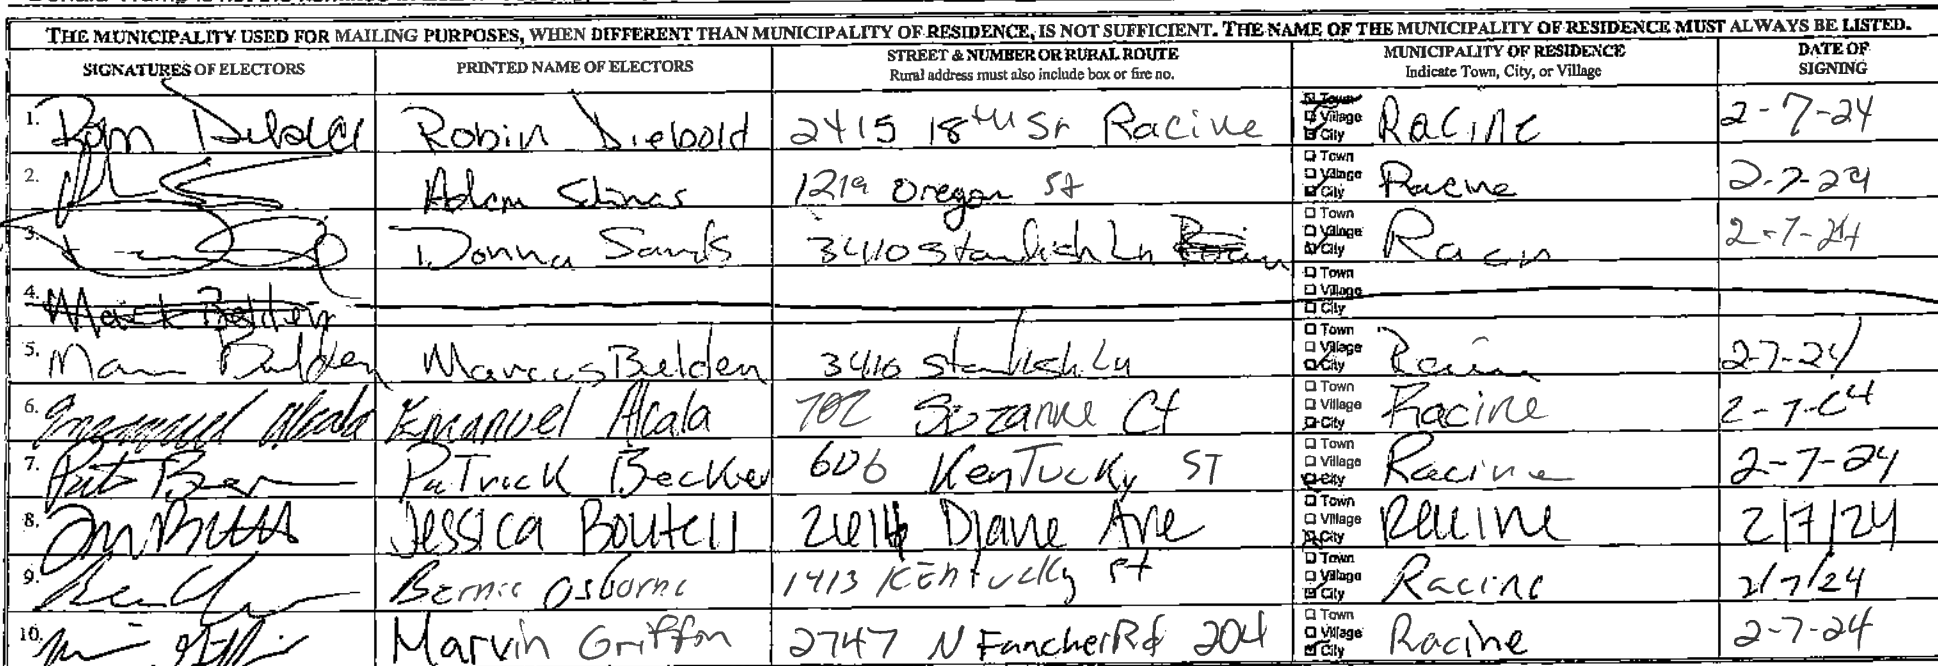 THE MUNICIPALITY USED FOR MAILING PURPOSES, WHEN DIFFERENT THAN MUNICIPALITY OF RESIDENCE, IS NOT SUFFICIENT. THE NAME OF THE MUNICIPALITY OF RESIDENCE MUST ALWAYS BE LISTED.
SIGNATURES OF ELECTORS PRINTED NAME OF ELECTORS STREET & NUMBER OR RURAL ROUTE Rural address must also include box or fire no. MUNICIPALITY OF RESIDENCE Indicate Town, City, or Village DATE OF SIGNING
1. Robin Diebold 2415 18th St Racine Town Village City Racine 2-7-24
2. Adam 1219 Oregon St Town Village City Racine 2-7-24
3. Donna Sands 3410 Standish Ln Town Village City 2-7-24
4. Mark Belden Town Village City
5. Marcus Belden 3410 Standish Ln Town Village City Racine 2-7-24
6. Emanuel Alcala Emanuel Alcala 702 Suzanne Ct Town Village City Racine 2-7-24
7. Patrick Becker 606 Kentucky ST Town Village City Racine 2-7-24
8. Jessica Boutell Diane Ave Town Village City Racine 2/7/24
9. Bernie Osborne 1413 Kentucky St Town Village City Racine 2/7/24
10. Marvin Griffon 2747 N Fancher Rd 204 Town Village City Racine 2-7-24